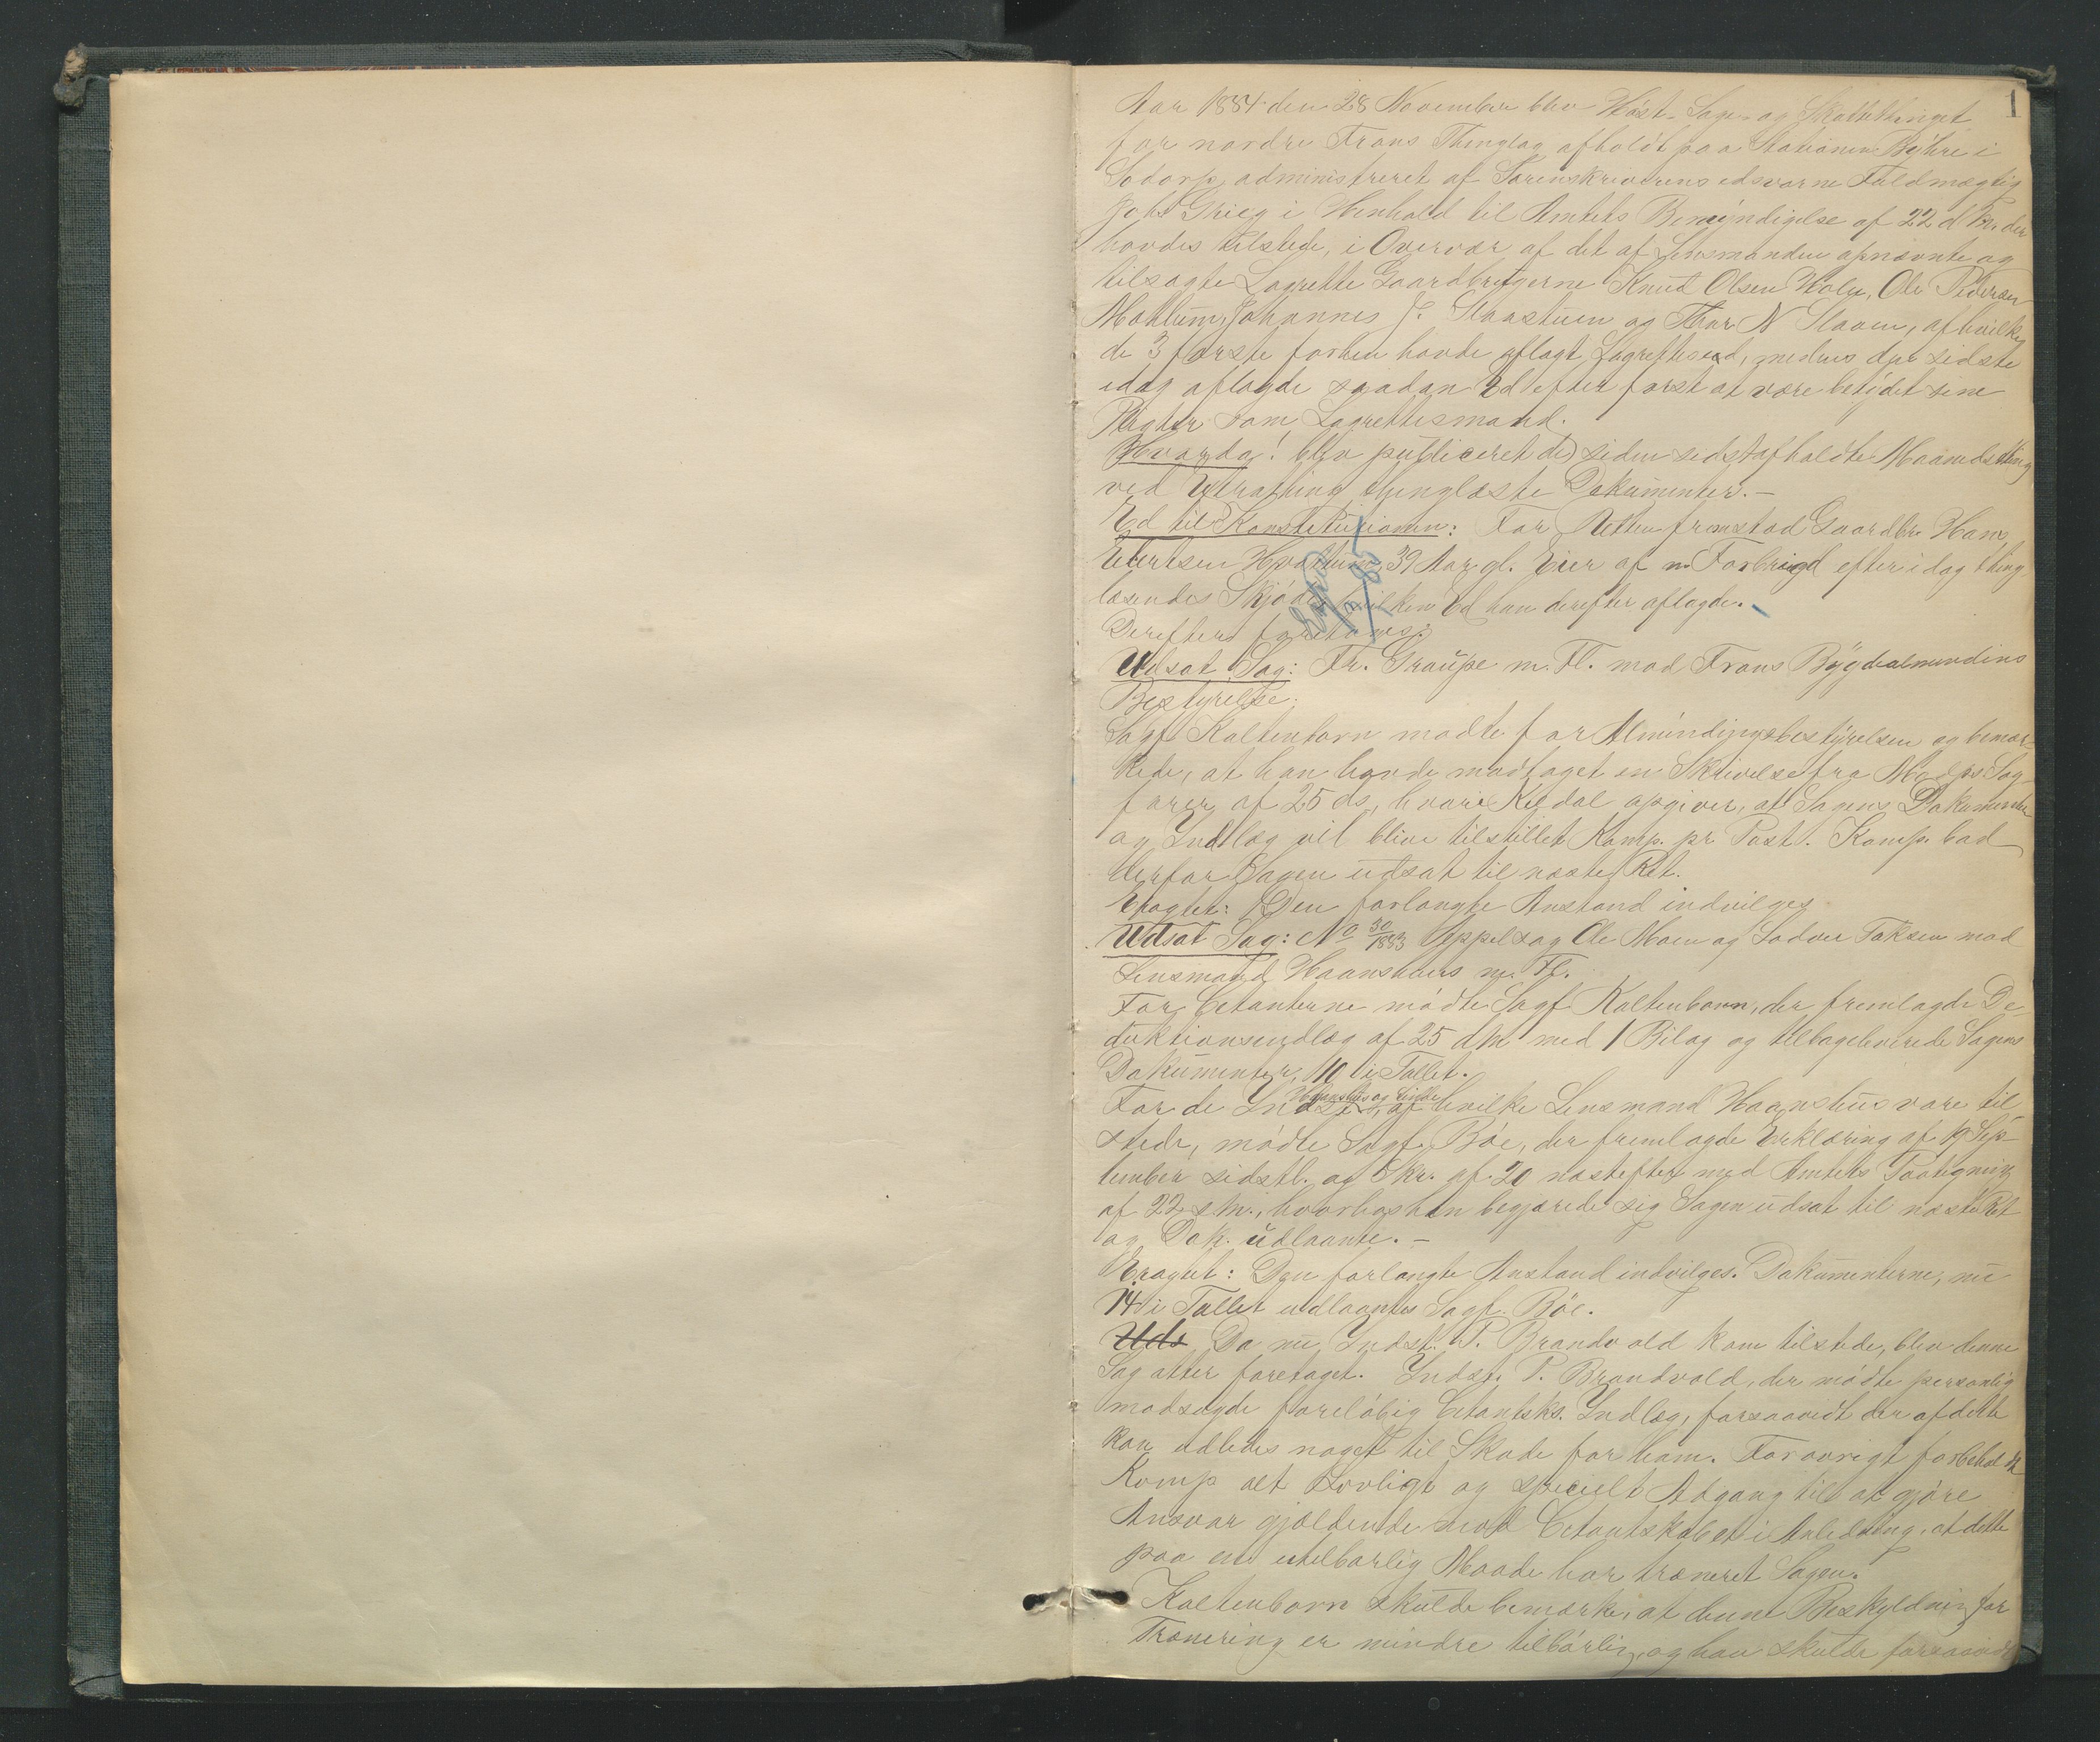 1
Aar 1884 den 28 November blev Høst- Sage- og Skattethinget
for nordre Frons Thinglag afholdt paa Stationen Byhre i
Sodorp, administreret af Sorenskriverens edsvorne Fuldmægtig
Johs Grieg i Henhold til Amtets Bemyndigelse af 22 d M. der
havdes tilstede, i Overvær af det af Lensmanden opnævnte og
tilsagte Lagrette Gaardbrugerne Knut Olsen Kolu, Ole Pedersen
Moklum, Johannes J. Staastuen og Thor N Slaaen, af hvilke
de 3 første forhen havde aflagt Lagrettesed, medens den sidste
idag aflagde saadan Ed efter først at være betydet sine
Pligter som Lagrettesmand.
Hvorda! blev publiceret de siden sidst afholdte Maanedsthing
ved Extrathing thinglæste Dokumenter.-
Ed til Konstitutionen: For Retten fremstod Gaardbr. Hans
Evertsen Hvattum, 39 Aar gl. Eier af n. Forbrigd efter idag thing
læsendes Skjøde, hvilken Ed han derefter aflagde.
Derefter foretoges:
Udsat Sag: Fr. Graupe m. Fl. mod Frons Bygdealmindins
Bestyrelse.
Sagf Kaltenborn mødte for Almindingsbestyrelsen og bemær-
kede, at han havde modtaget en Skrivelse fra Modps Sag-
fører af 25 ds, hvori Kildal opgiver, at Sagens Dokumenter
og Indlæg vil blive tilstillet Komp. pr Post. Komp. bad
derfor Sagen udsat til næste Ret.
Eragtet: Den forlangte Anstand indvilges.
Udsat Sag: No 30/1883 Appelsag Ole Moen og Sodver Toksen mod
Lensmand Haanshuus m. Fl.
For Citanterne mødte Sagf Kaltenborn, der fremlagde De-
duktionsindlæg af 25 dM med 1 Bilag og tilbageleverede Sagens
Dokumenter, 10 i Tallet.
Haanshus og Linde
For de Indst, af hvilke Lensmand Haanshus vare til
stede, mødte Sagf. Bøe, der fremlagde Erklæring af 19 Sep-
tember sidstl. og Skr. af 20 næstefter med Amtets Paategning
af 22 s. M., hvorhos han begjærede sig Sagen udsat til næste Ret
og Dok. udlaante.-
Eragtet: Den forlangte Anstand indvilges. Dokumenterne, nu
14 i Tallet udlaantes Sagf. Bøe.
Uds Da nu Indst. P. Brandvold kom tilstede, blev denne
Sag atter foretaget. Indst. P. Brandvold, der mødte personlig
modsagde foreløbig Citantsks. Indlæg, forsaavidt der af dette
kan udledes noget til Skade for ham. Forøvrigt forbeholdt
Komp alt Lovligt og specielt Adgang til at gjøre
Ansvar gjældende mod Citantskabet i Anledning, at dette
paa en utilbørlig Maade har træneret Sagen.
Kaltenborn skulde bemærke, at denne Beskyldning for
Trænering er mindre tilbørlig, og han skulde forsaavidt